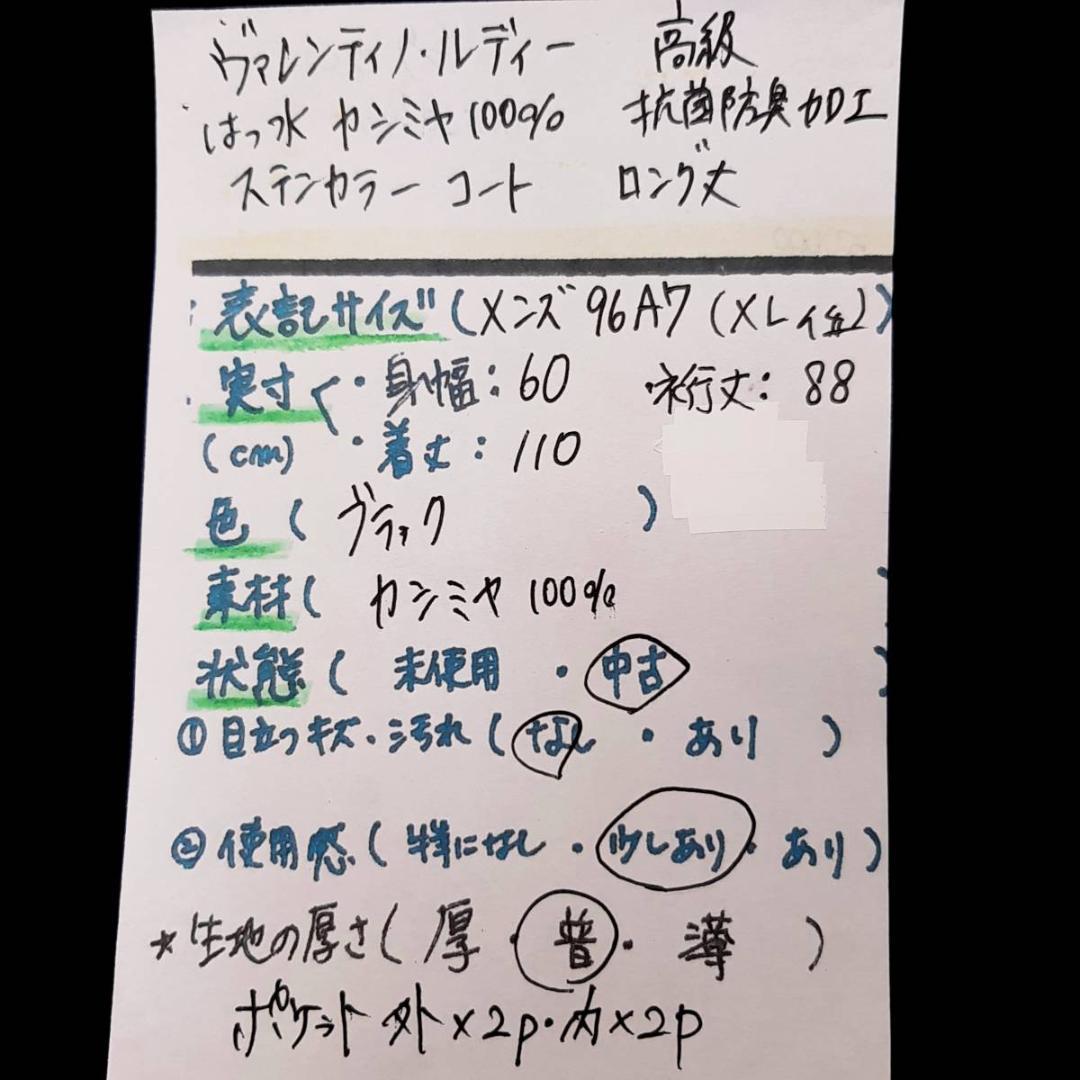 ヴァレンティノ・ルディー 高級
はっ水 カシミヤ100% 抗菌防臭加工
ステンカラー コート ロング丈
表記サイズ(メンズ 96A7 (XL位))
実寸 ・身幅:60 裄丈:88
(cm) ・着丈:110
色( ブラック )
素材( カシミヤ 100% )
状態( 未使用 ・ 中古 )
①目立つキズ・汚れ(なし ・ あり )
②使用感(特になし ・ 少しあり ・ あり)
★生地の厚さ(厚 ・ 普 ・ 薄 )
ポケット 外×2p・内×2p